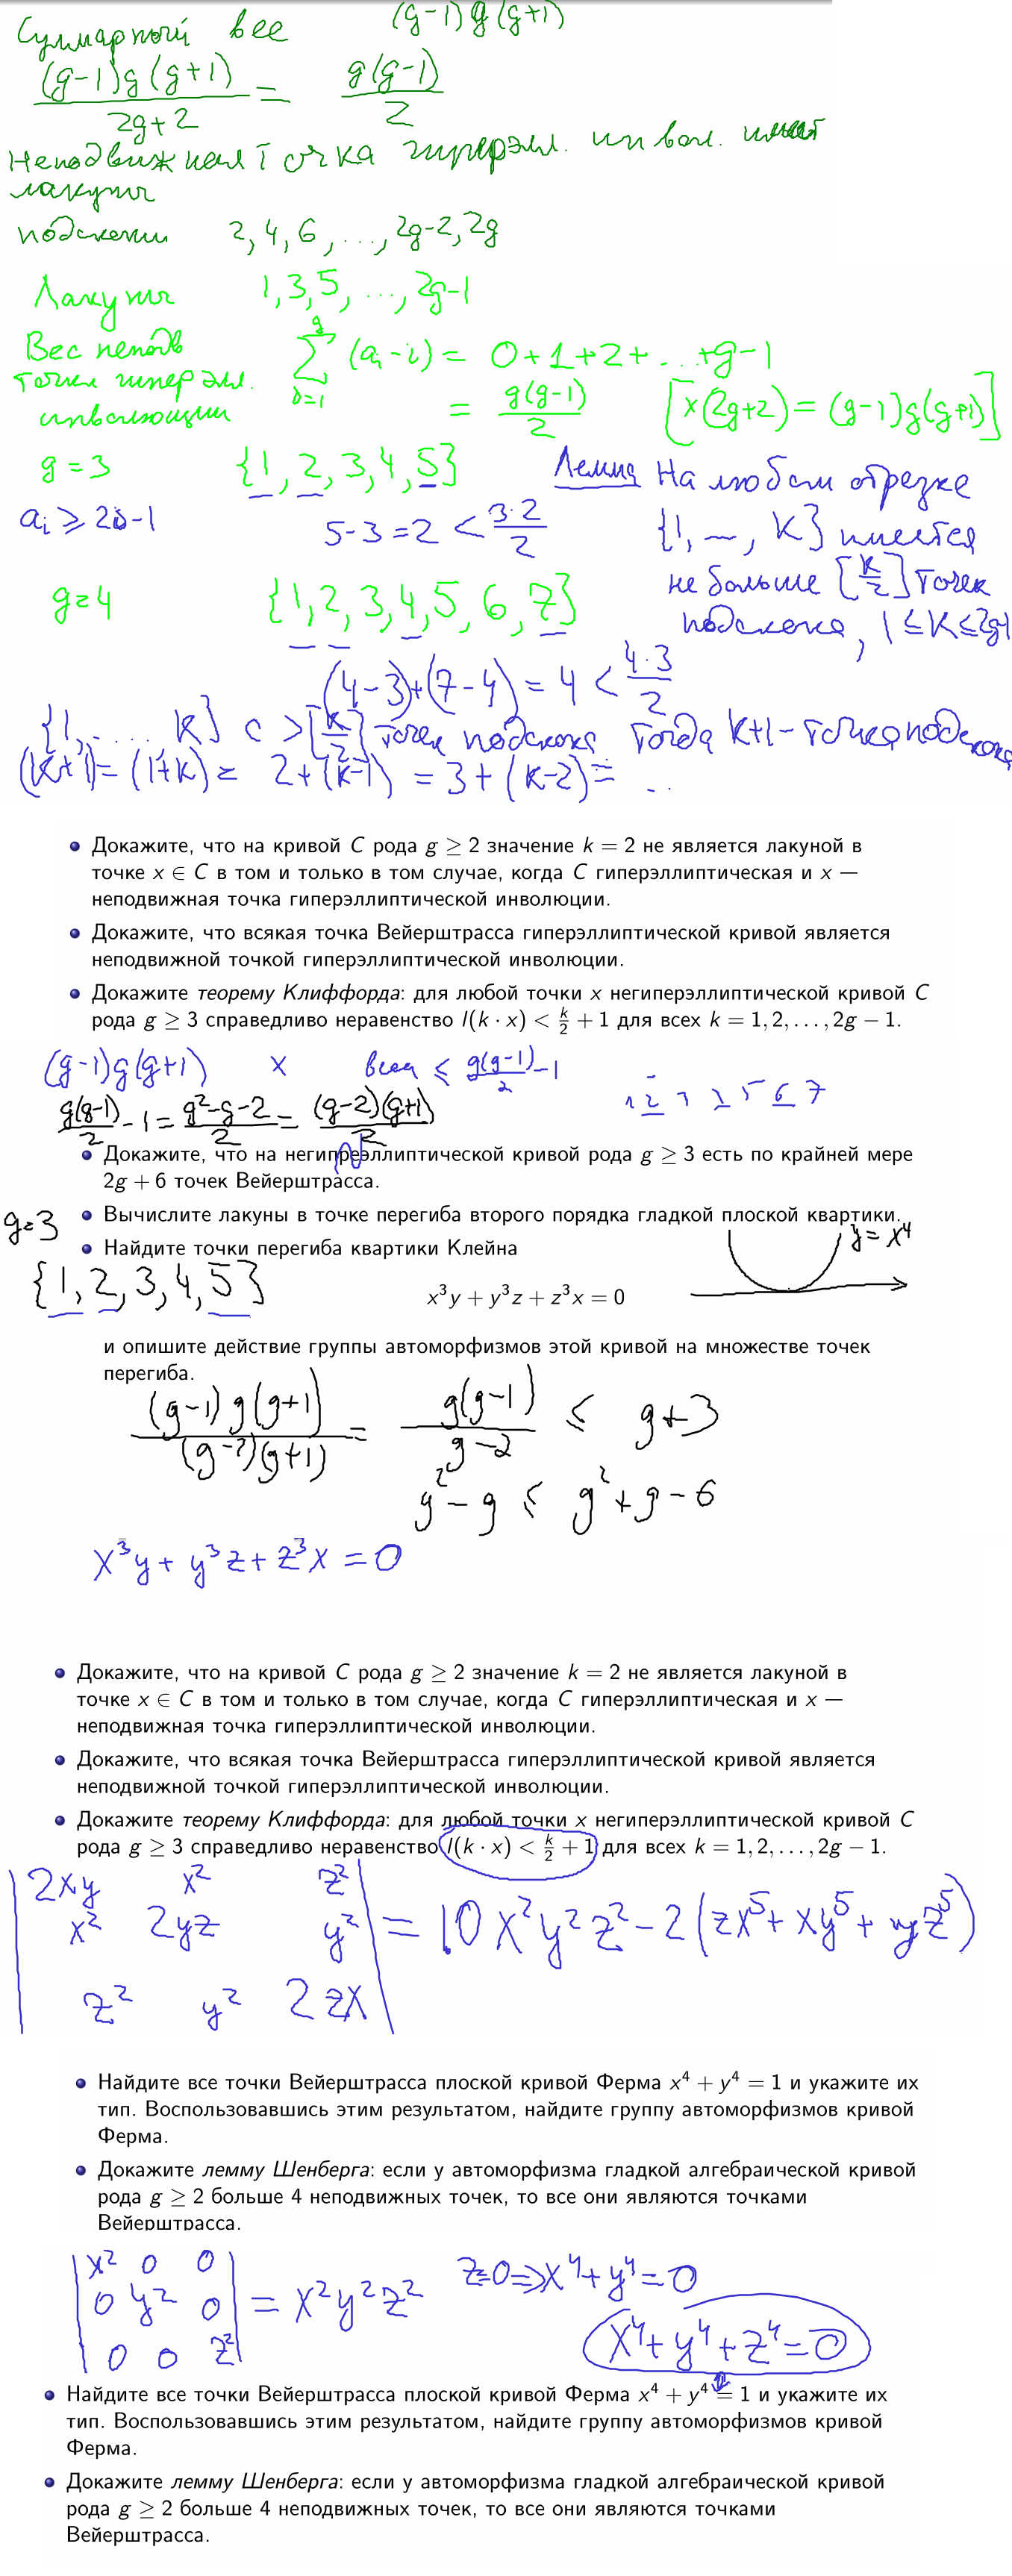 Суммарный вес (g-1)g(g+1)
(g-1)g(g+1)/(2g+2) = g(g-1)/2
Неподвижная точка гиперэлл. инвол. имеет
лакуны
подскоки 2, 4, 6, ..., 2g-2, 2g
Лакуны 1, 3, 5, ..., 2g-1
Вес неподв
точки гиперэлл.
инволюции
∑ (a_i - i) = 0+1+2+...+g-1
= g(g-1)/2 [x(2g+2) = (g-1)g(g+1)]
g=3 {1, 2, 3, 4, 5}
a_i ≥ 2i-1 5-3=2 < 3·2/2
Лемма На любом отрезке
{1, ..., K} имеется
не больше [K/2] точек
подскока, 1 ≤ K ≤ 2g-1
g=4 {1, 2, 3, 4, 5, 6, 7}
(4-3)+(7-4) = 4 < 4·3/2
{1, .... K} с > [K/2] точек подскока. Тогда K+1 - точка подскока
(K+1) = (1+K) = 2+(K-1) = 3+(K-2) = ...
• Докажите, что на кривой C рода g ≥ 2 значение k = 2 не является лакуной в
точке x ∈ C в том и только в том случае, когда C гиперэллиптическая и x —
неподвижная точка гиперэллиптической инволюции.
• Докажите, что всякая точка Вейерштрасса гиперэллиптической кривой является
неподвижной точкой гиперэллиптической инволюции.
• Докажите теорему Клиффорда: для любой точки x негиперэллиптической кривой C
рода g ≥ 3 справедливо неравенство l(k · x) < k/2 + 1 для всех k = 1, 2, . . . , 2g − 1.
(g-1)g(g+1) x веса ≤ g(g-1)/2 - 1
g(g-1)/2 - 1 = (g²-g-2)/2 = (g-2)(g+1)/2
• Докажите, что на негипрeэллиптической кривой рода g ≥ 3 есть по крайней мере
2g + 6 точек Вейерштрасса.
• Вычислите лакуны в точке перегиба второго порядка гладкой плоской квартики.
g=3
• Найдите точки перегиба квартики Клейна
y = x⁴
{1, 2, 3, 4, 5}
x³y + y³z + z³x = 0
и опишите действие группы автоморфизмов этой кривой на множестве точек
перегиба.
(g-1)g(g+1)/((g-2)(g+1)) = g(g-1)/(g-2) ≤ g+3
g²-g ≤ g²+g-6
x³y + y³z + z³x = 0
• Докажите, что на кривой C рода g ≥ 2 значение k = 2 не является лакуной в
точке x ∈ C в том и только в том случае, когда C гиперэллиптическая и x —
неподвижная точка гиперэллиптической инволюции.
• Докажите, что всякая точка Вейерштрасса гиперэллиптической кривой является
неподвижной точкой гиперэллиптической инволюции.
• Докажите теорему Клиффорда: для любой точки x негиперэллиптической кривой C
рода g ≥ 3 справедливо неравенство l(k · x) < k/2 + 1 для всех k = 1, 2, . . . , 2g − 1.
| 2xy x² z² |
| x² 2yz y² | = 10x²y²z² - 2(zx⁵ + xy⁵ + yz⁵)
| z² y² 2zx |
• Найдите все точки Вейерштрасса плоской кривой Ферма x⁴ + y⁴ = 1 и укажите их
тип. Воспользовавшись этим результатом, найдите группу автоморфизмов кривой
Ферма.
• Докажите лемму Шенберга: если у автоморфизма гладкой алгебраической кривой
рода g ≥ 2 больше 4 неподвижных точек, то все они являются точками
Вейерштрасса.
| x² 0 0 |
| 0 y² 0 | = x²y²z² z=0 ⇒ x⁴+y⁴=0
| 0 0 z² |
x⁴+y⁴+z⁴=0
• Найдите все точки Вейерштрасса плоской кривой Ферма x⁴ + y⁴ = 1 и укажите их
тип. Воспользовавшись этим результатом, найдите группу автоморфизмов кривой
Ферма.
• Докажите лемму Шенберга: если у автоморфизма гладкой алгебраической кривой
рода g ≥ 2 больше 4 неподвижных точек, то все они являются точками
Вейерштрасса.